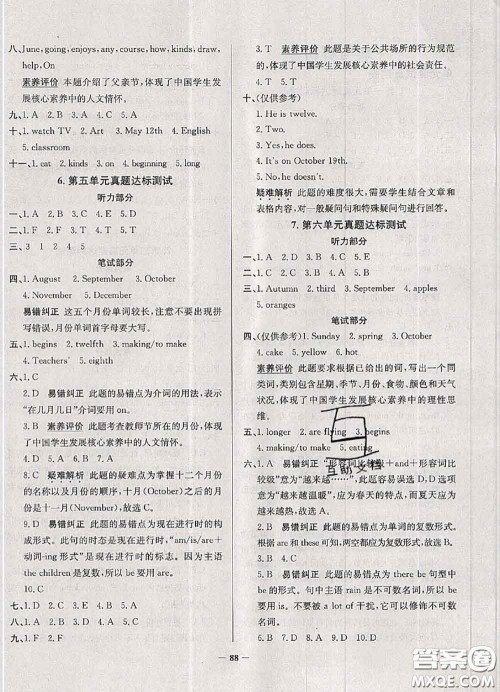 八、June, going, enjoys, any, course, how, kinds, draw,
help, On
素养评价 本题介绍了父亲节,体现了中国学生发
展核心素养中的人文情怀。
九、1. watch TV 2. Art 3. May 12th 4. English
5. classroom
十一、1. eat 2. kinds 3. on 4. beginning 5. long
6. 第五单元真题达标测试
听力部分
一、1. A 2. B 3. C 4. B 5. A
二、1. F 2. F 3. T 4. F 5. T
三、3 1 2 4 5
笔试部分
四、1. August 2. September 3. October
4. November 5. December
易错纠正 这五个月份单词较长,注意不要出现拼
写错误,月份单词首字母要大写。
五、1. begins 2. twelfth 3. making/to make
4. Teachers' 5. eighth
六、1. C
2. D 易错纠正 此题的易错点为介词的用法,表示
“在几月几日”介词要用on。
3. D 素养评价 此题考查教师节所在的月份,体现
出中国学生发展核心素养中的人文情怀。
4. B 5. D 6. B
7. C 疑难解析 此题的疑难点为掌握十二个月份
的名称以及月份的顺序,十月(October)之后是
十一月(November),故选C。
8. C 易错纠正 此题的易错点为现在进行时的构
成形式。此句的时态是现在进行时,“am/is/are+
动词-ing形式”是现在进行时的标志。因为主语
the children是复数,所以be要用are。
9. D 10. C
七、1. D 2. C 3. A 4. E 5. B
八、1. D 2. C 3. A 4. B 5. E
九、1. F 2. F
3. T 素养评价 此题是关于公共场所的行为规范
的,体现了中国学生发展核心素养中的社会责任。
4. T 5. F
十、(仅供参考)
1. He is twelve.
2. Two.
3. Yes, he is.
4. It's on October 19th.
5. No, he doesn't.
疑难解析 此题的难度很大,需要学生结合文章和
表格内容,对一般疑问句和特殊疑问句进行回答。
7. 第六单元真题达标测试
听力部分
一、1. C 2. B 3. A 4. B 5. C
二、1. C 2. A 3. D 4. E 5. B
三、1. Autumn 2. third 3. September 4. apples
5. oranges
笔试部分
四、(仅供参考) 1. Sunday 2. spring 3. October
4. cake 5. yellow 6. hot
素养评价 此题要求根据已给出的词,写出一个同
类词,类别包含星期、季节、月份、食物、颜色和天气
状况,体现了中国学生发展核心素养中的理性思
维。
五、1. longer 2. are flying 3. begins
4. making/to make 5. eating
六、1. A 易错纠正 “形容词比较级+and+形容词
比较级”意为“越来越……”,此题容易误选D,D选项
意为“越来越温暖”,应为春天的特点,而夏天是越
来越热,故选A。
2. B 易错纠正 此题的易错点为单词的复数形式。
根据are和these可知,两空都应为复数形式,故选B。
3. C 4. A
5. D 易错纠正 此题的易错点为there be句型中
be的形式。句中主语rain是不可数名词,所以be
要用is。不要被a lot of干扰,它可以修饰不可数
名词。
6. B 7. C 8. D 9. B 10. D
七、1. F 2. C
88
互助文库
答案圈
MXQE.COM